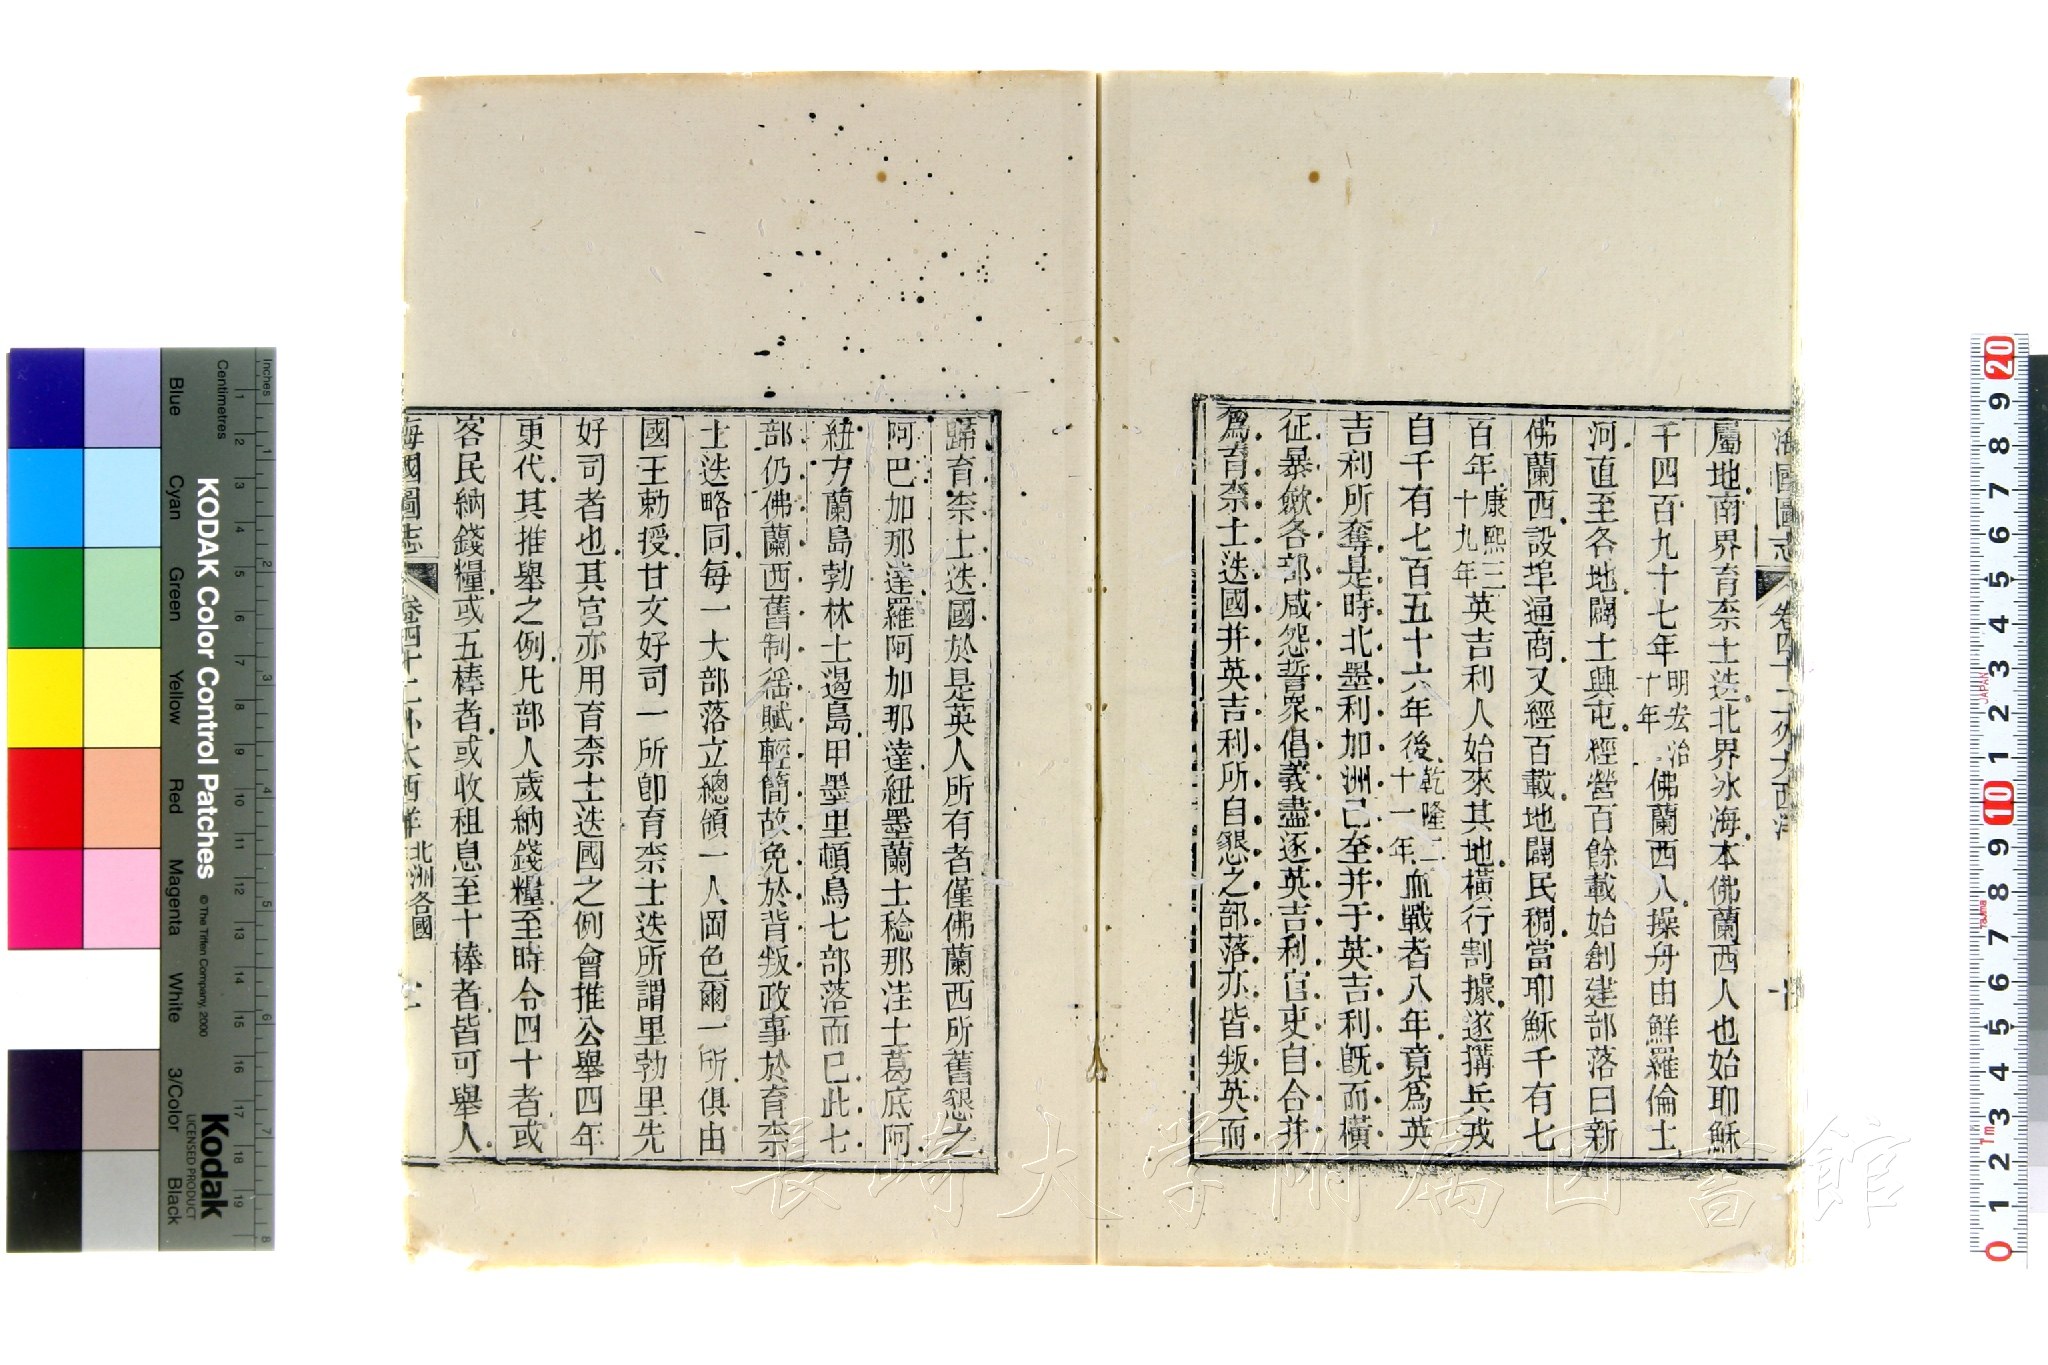 海國圖志 卷四十二 外大西洋
屬地南界育柰士迭北界冰海本佛蘭西人也始耶穌
千四百九十七年明宏治十年佛蘭西人操舟由鮮羅倫士
河直至各地闢土興屯經營百餘載始創建部落曰新
佛蘭西設埠通商又經百載地闢民稠當耶穌千有七
百年康熙三十九年英吉利人始來其地橫行割據遂搆兵戎
自千有七百五十六年後乾隆二十一年血戰者八年竟爲英
吉利所奪是時北墨利加洲已至并于英吉利旣而橫
征暴斂各部咸怨誓眾倡義盡逐英吉利官吏自合并
爲育柰士迭國并英吉利所自懇之部落亦皆叛英而
歸育柰士迭國於是英人所有者僅佛蘭西所舊懇之
阿巴加那達羅阿加那達紐墨蘭士稔那洼士葛底阿
紐方蘭島勃林士邊島甲墨里頓島七部落而已此七
部仍佛蘭西舊制徭賦輕簡故免於背叛政事於育柰
士迭略同每一大部落立總領一人岡色爾一所俱由
國王勅授甘文好司一所卽育柰士迭所謂里勃里先
好司者也其官亦用育柰士迭國之例會推公舉四年
更代其推舉之例凡部人歲納錢糧至時令四十者或
客民納錢糧或五棒者或收租息至十棒者皆可舉人
海國圖志 卷四十二 外大西洋 北洲各國
KODAK Color Control Patches
© The Tiffen Company, 2000
Kodak
LICENSED PRODUCT
Inches
Centimetres
Blue
Cyan
Green
Yellow
Red
Magenta
White
3/Color
Black
長崎大学附属図書館